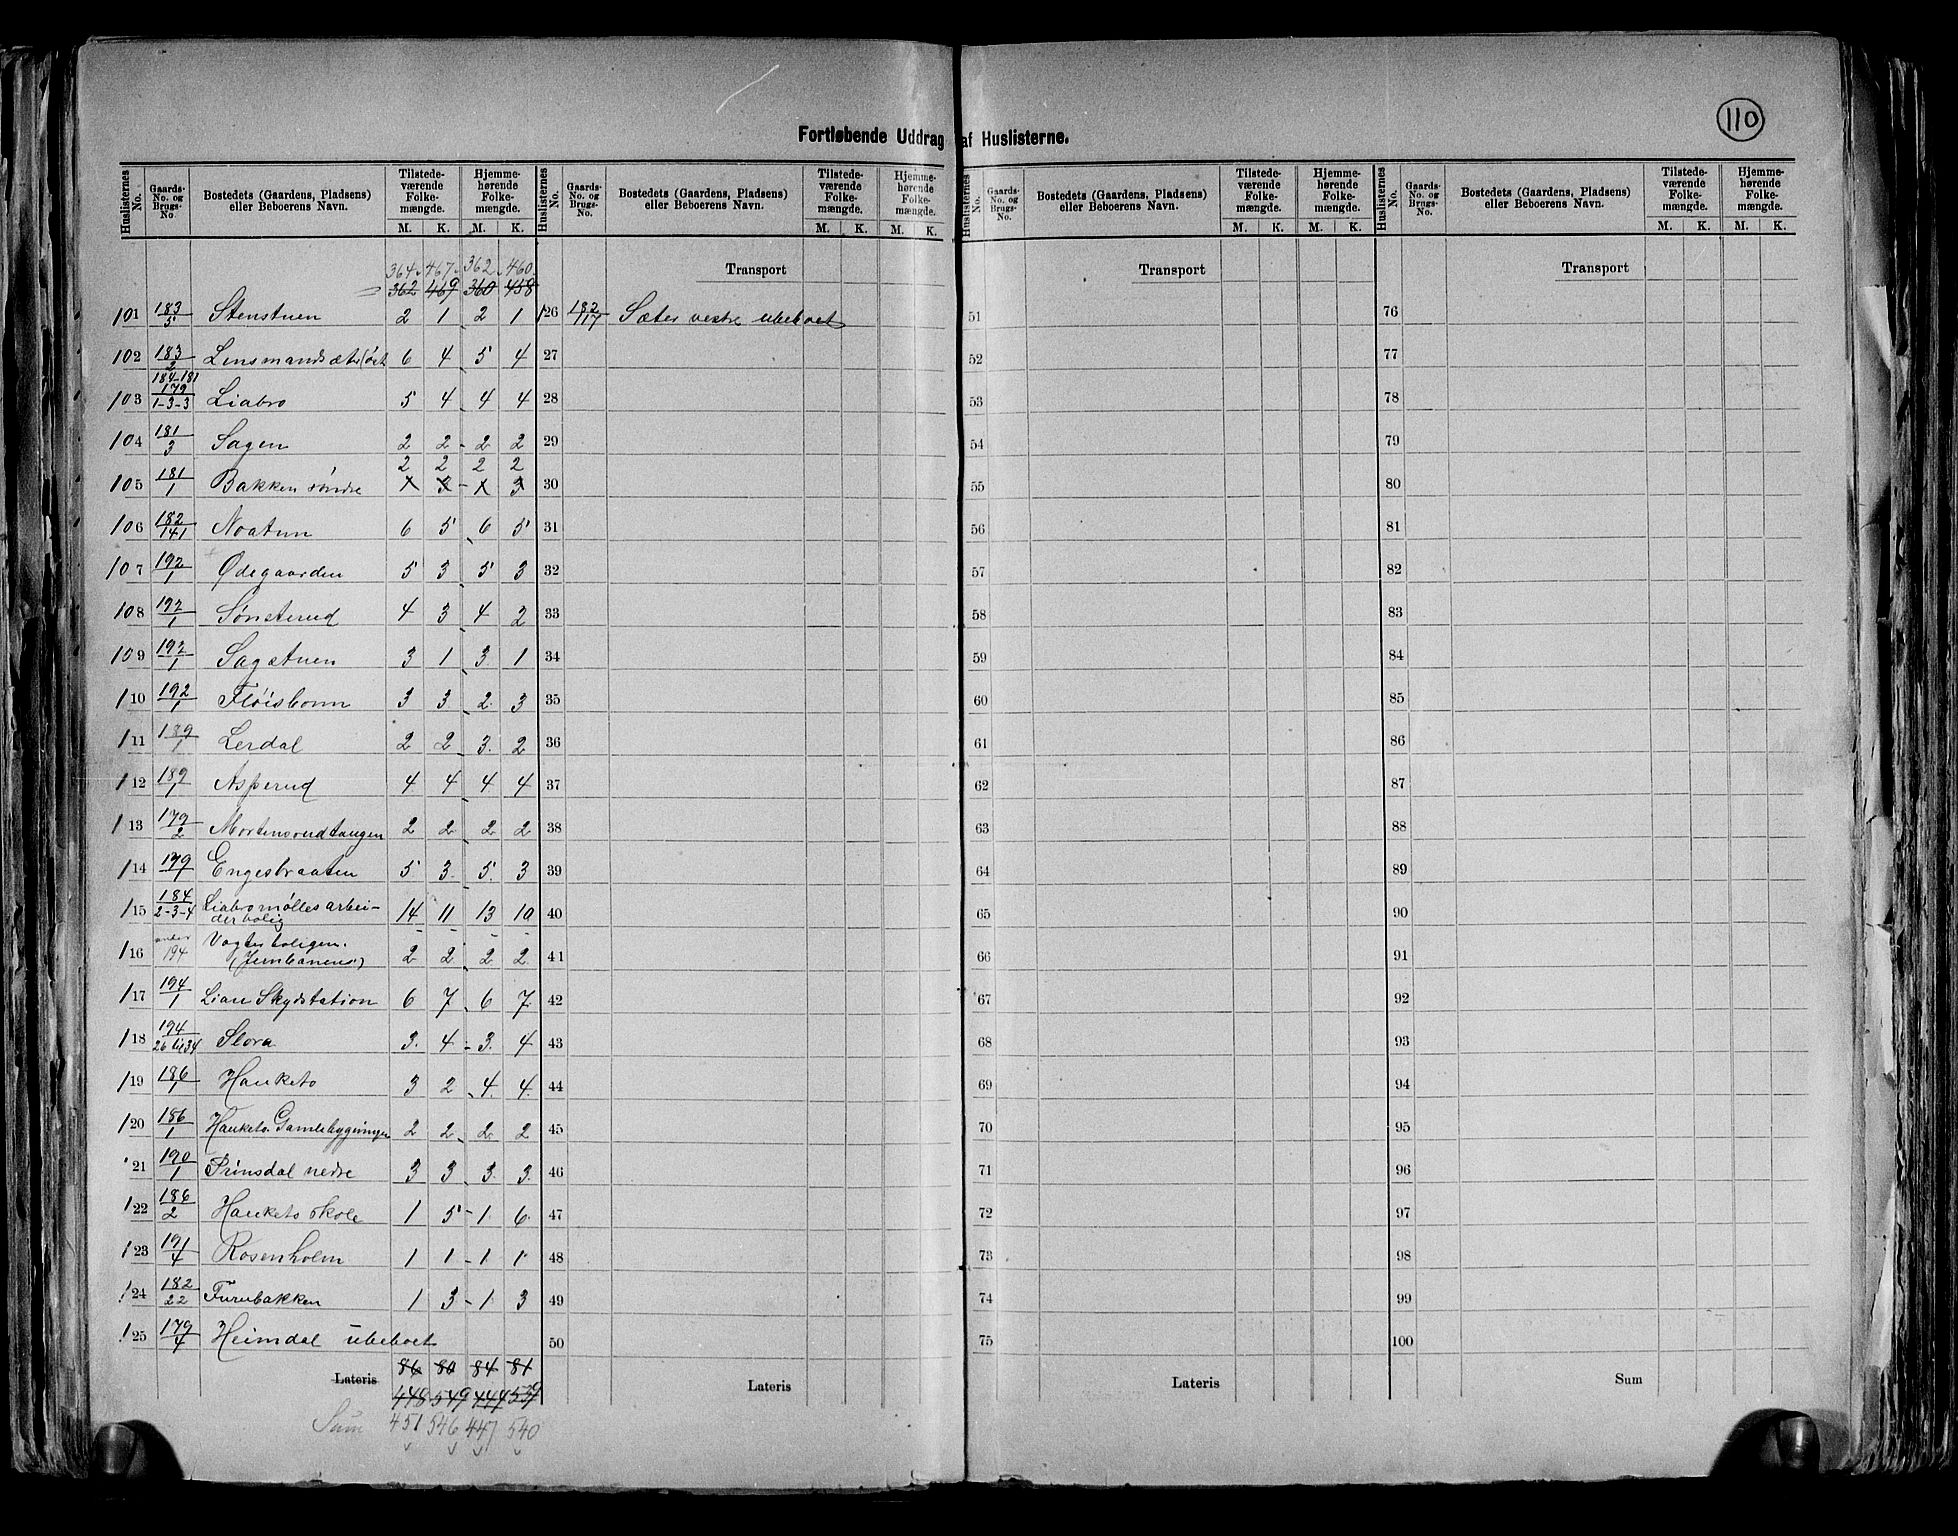 110
Fortløbende Uddrag af Huslisterne.
Huslisternes No. | Gaards-No. og Brugs-No. | Bostedets (Gaardens, Pladsens) eller Beboerens Navn. | Tilstedeværende Folkemængde. M. K. | Hjemmehørende Folkemængde. M. K.
Huslisternes No. | Gaards-No. og Brugs-No. | Bostedets (Gaardens, Pladsens) eller Beboerens Navn. | Tilstedeværende Folkemængde. M. K. | Hjemmehørende Folkemængde. M. K.
Huslisternes No. | Gaards-No. og Brugs-No. | Bostedets (Gaardens, Pladsens) eller Beboerens Navn. | Tilstedeværende Folkemængde. M. K. | Hjemmehørende Folkemængde. M. K.
Huslisternes No. | Gaards-No. og Brugs-No. | Bostedets (Gaardens, Pladsens) eller Beboerens Navn. | Tilstedeværende Folkemængde. M. K. | Hjemmehørende Folkemængde. M. K.
364 467 362 460
362 469 360 458
101 183/5 Stenstuen 2 1 2 1
102 183/2 Lensmandsæter (øst 6 4 5 4
103 184-181 179/1-3-3 Liabro 5 4 4 4
104 181/3 Sagen 2 2 2 2
2 2 2 2
105 181/1 Bakken søndre 1 3 1 3
106 182/141 Noatun 6 5 6 5
107 192/1 Ødegaarden 5 3 5 3
108 192/1 Sønsterud 4 3 4 2
109 192/1 Sagstuen 3 1 3 1
110 192/1 Fløisbonn 3 3 2 3
111 189/1 Lerdal 2 2 3 2
112 189/1 Asperud 4 4 4 4
113 179/2 Mortensrudtangen 2 2 2 2
114 179/1 Engesbraaten 5 3 5 3
115 184/2-3-4 Liabro mølles arbeiderbolig 14 11 13 10
116 under 194 Vogterboligen (Jernbanens) 2 2 2 2
117 194/1 Lian Skydstation 6 7 6 7
118 194/26 til 34 Slora 3 4 3 4
119 186/1 Hauketo 3 2 4 4
120 186/1 Hauketo Gamlebygningen 2 2 2 2
121 190/1 Prinsdal nedre 3 3 3 3
122 186/2 Hauketo skole 1 5 1 6
123 191/4 Rosenholm 1 1 1 1
124 182/22 Furubakken 1 3 1 3
125 179/4 Heimdal ubeboet
Lateris 86 80 84 81
448 549 444 539
Sum 451 546 447 540
Transport
126 182/117 Sæter vestre ubeboet
27
28
29
30
31
32
33
34
35
36
37
38
39
40
41
42
43
44
45
46
47
48
49
50
Lateris
Transport
51
52
53
54
55
56
57
58
59
60
61
62
63
64
65
66
67
68
69
70
71
72
73
74
75
Lateris
Transport
76
77
78
79
80
81
82
83
84
85
86
87
88
89
90
91
92
93
94
95
96
97
98
99
100
Sum